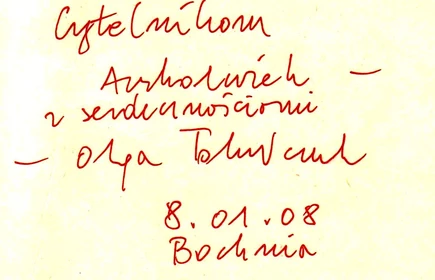 Czytelnikom
—
z serdecznościami
— Olga Tokarczuk
8.01.08
Bochnia